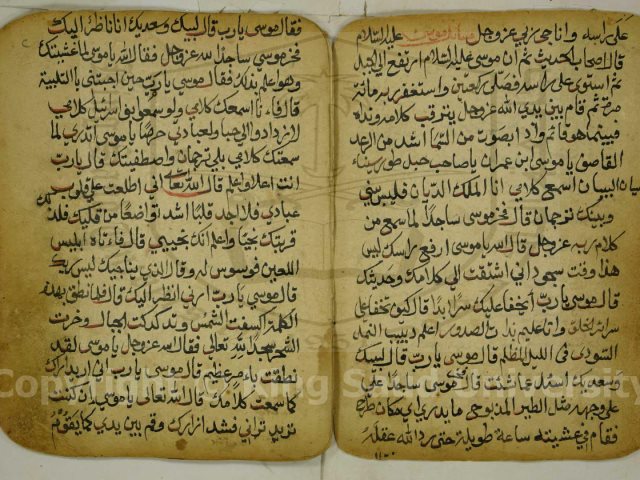 على راسه وانا جي ربي عز وجل مناجاة موسى عليه السلام
قال اصحاب الحديث ثم ان موسى عليه السلام ارتفع الى الجبل
ثم استوى على راسه فصلى ركعتين واستغفر ربه مائة
مرة ثم قام بين يدي الله عز وجل يترقب كلامه ونداه
فبينما هو قائم واذا بصوت من السما اشد من الرعد
القاصف يا موسى بن عمران يا صاحب جبل طور سيناء
البيان اسمع كلامي انا الملك الديان فليس بيني
وبينك ترجمان قال فخر موسى ساجدا لما سمع من
كلام ربه عز وجل قال الله يا موسى ارفع راسك ليس
هذا وقت سجود اني اشتقت الى كلامك وحديثك
قال موسى يا رب أيخفا عليك سرا ابدا قال كيف تخفا علي
سرائر الخلق وانا عليم بذات الصدور اعلم دبيب النملة
السودى في الليل المظلم قال موسى يا رب قال لبيك
وسعديك اسئل عما شئت قال فخر موسى ساجدا على
على وجهه مثل الطير المذبوحي ما يدري اي مكان طرح
فقام في غشيته ساعة طويلة حتى رد الله عقله
فقال موسى يا رب قال لبيك وسعديك انا ناظر اليك
فخر موسى ساجدا لله عز وجل فقال الله يا موسى لما غشيتك
وهو اعلم بذلك فقال موسى يا رب حين اجبتني بالتلبية
قال فاءنا اسمعك كلامي ولو سمعوا بنو اسرائل كلامي
لازدادو الي حبا ولعبادتي حرصا يا موسى اتدري لما
سمعتك كلامي بلى ترجمان واصطفيتك قال يا رب
انت اعلا واعلم قال الله تعا اني اطلعت على قلوب
عبادي فلا اجد قلبا اشد تواضعا من قلبك فلذ
قربتك نجيا واعلم انك تحبني قال فاءتاه ابليس
اللعين فوسوس له وقال الذي يناجيك ليس ربك
قال موسى يا رب ارني انظر اليك قال فلما نطق بهذه
الكلمة اكسفت الشمس وتدكدكت الجبال وخرت
الشجر سجدا لله تعالى فقال الله عز وجل يا موسى لقد
نطقت بامر عظيم قال موسى يا رب اني اريد اراك
كما سمعت كلامك قال الله تعالى يا موسى ان كنت
تريد تراني فشد ازارك وقم بين يدي كما يقوم
Copyright © King Saud University